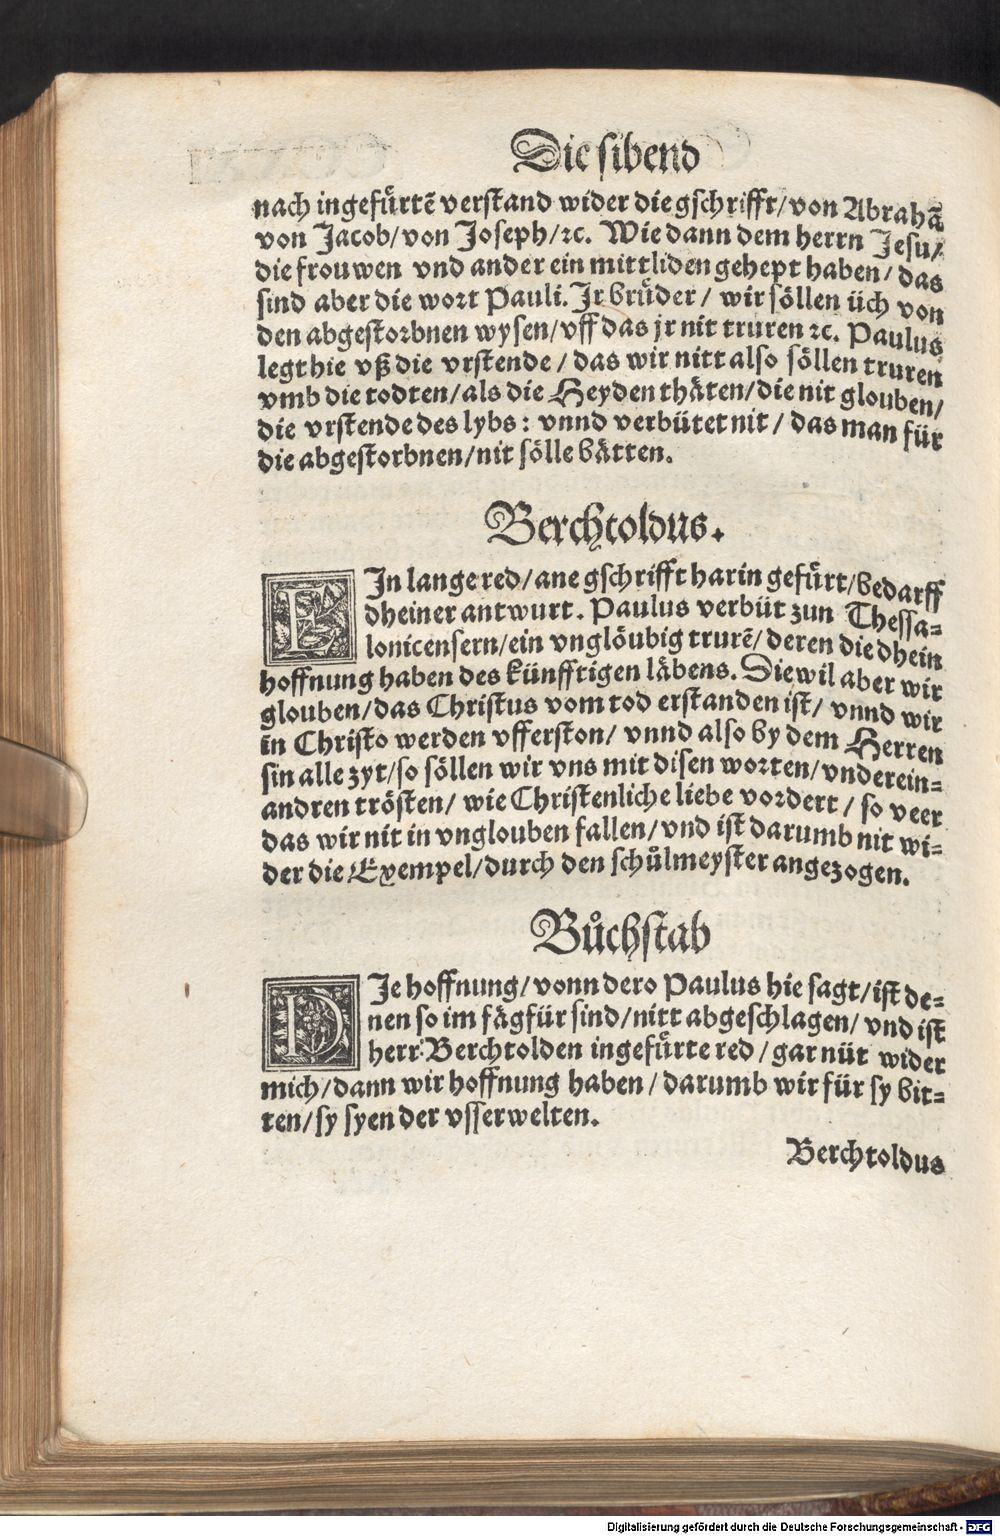 Die sibend
nach ingefuͤrtē verstand wider die gschrifft/von Abrahā
von Jacob/von Joseph/ꝛc. Wie dann dem herrn Jesu/
die frouwen vnd ander ein mittliden gehept haben/das
sind aber die wort Pauli. Jr bruͤder/ wir soͤllen üch von
den abgestorbnen wysen/vff das jr nit truren ꝛc. Paulus
legt hie vß die vrstende/das wir nitt also soͤllen truren
vmb die todten/als die Heyden thaͤten/die nit glouben/
die vrstende des lybs: vnnd verbütet nit/ das man für
die abgestorbnen/nit soͤlle baͤtten.
Berchtoldus.
EJn lange red/ane gschrifft harin gefuͤrt/bedarff
dheiner antwurt. Paulus verbüt zun Thessa-
lonicensern/ein vngloͤubig trurē/deren die dhein
hoffnung haben des künfftigen laͤbens. Die wil aber wir
glouben/das Christus vom tod erstanden ist/ vnnd wir
in Christo werden vfferston/ vnnd also by dem Herren
sin alle zyt/so soͤllen wir vns mit disen worten/vnderein-
andren troͤsten/ wie Christenliche liebe vordert/ so veer
das wir nit in vnglouben fallen/vnd ist darumb nit wi-
der die Exempel/durch den schůlmeyster angezogen.
Bůchstab
DJe hoffnung/vonn dero Paulus hie sagt/ist de-
nen so im faͤgfür sind/nitt abgeschlagen/ vnd ist
herr Berchtolden ingefuͤrte red/gar nüt wider
mich/dann wir hoffnung haben/darumb wir für sy bit-
ten/sy syen der vsserwelten.
Berchtoldus
Digitalisierung gefördert durch die Deutsche Forschungsgemeinschaft - DFG